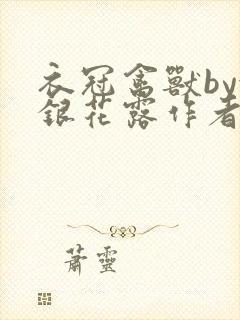 衣冠禽獸by
銀花露作者
蕭靈